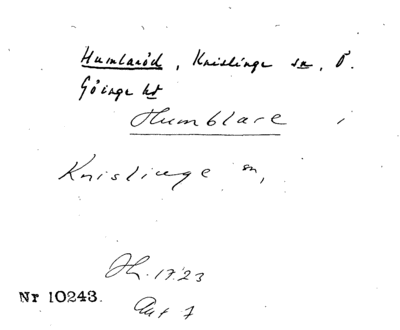 Humlaröd, Knislinge sn, Ö.
Göinge hd
Humblare i
Knislinge sn,
Jb. 1723
Nr 10243.
Ant 7